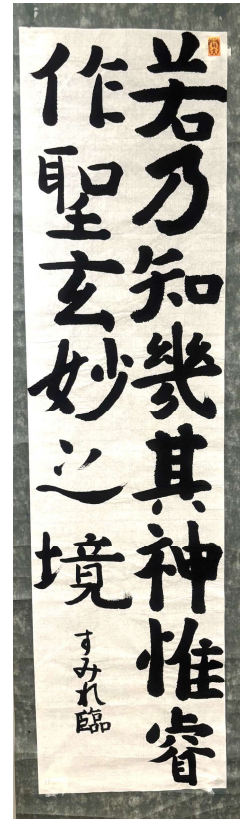 若乃知幾其神惟睿
作聖玄妙之境
すみれ臨